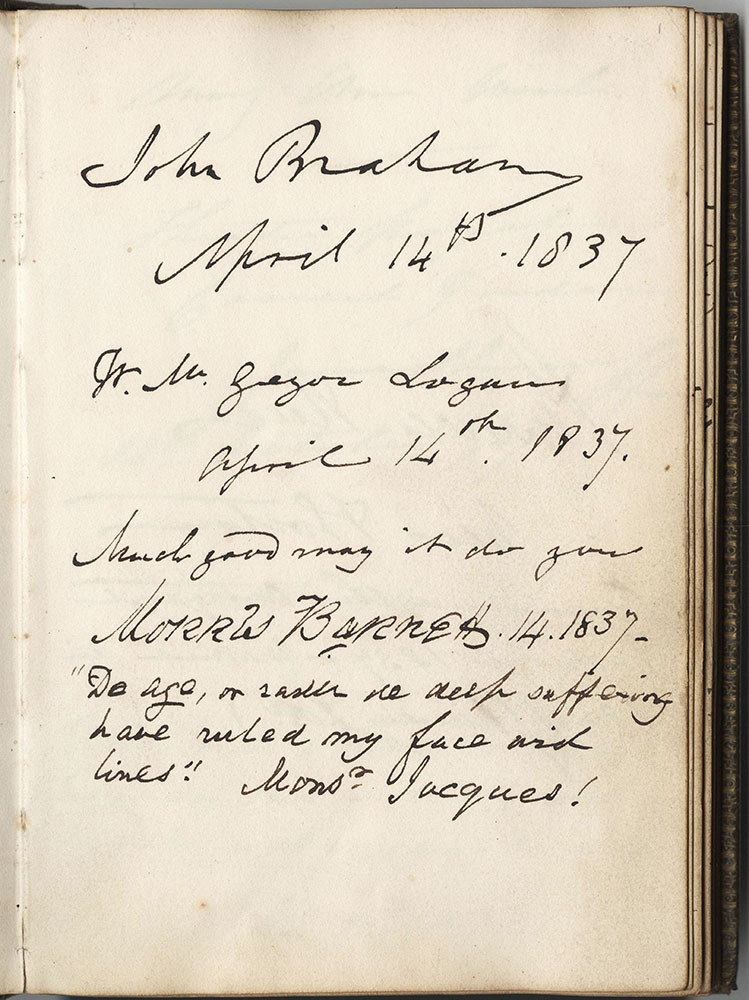 John Braham
April 14th. 1837
W. Mc. Gregor Logan
April 14th. 1837.
Much good may it do you
Morris Barnett. 14. 1837-
"De age, or radir de deep suffering
have ruled my face wid
lines". Monsr. Jacques!